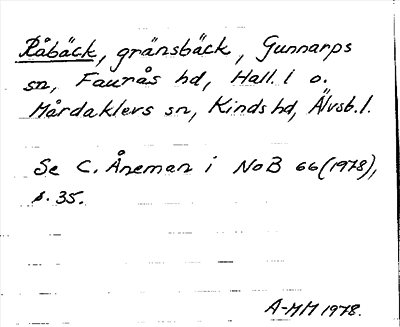 Råbäck, gränsbäck, Gunnarps
sn, Faurås hd, Hall. l o.
Mårdaklevs sn, Kinds hd, Älvsb. l.
Se C. Åneman i NoB 66 (1978),
s. 35.
A-MM 1978.